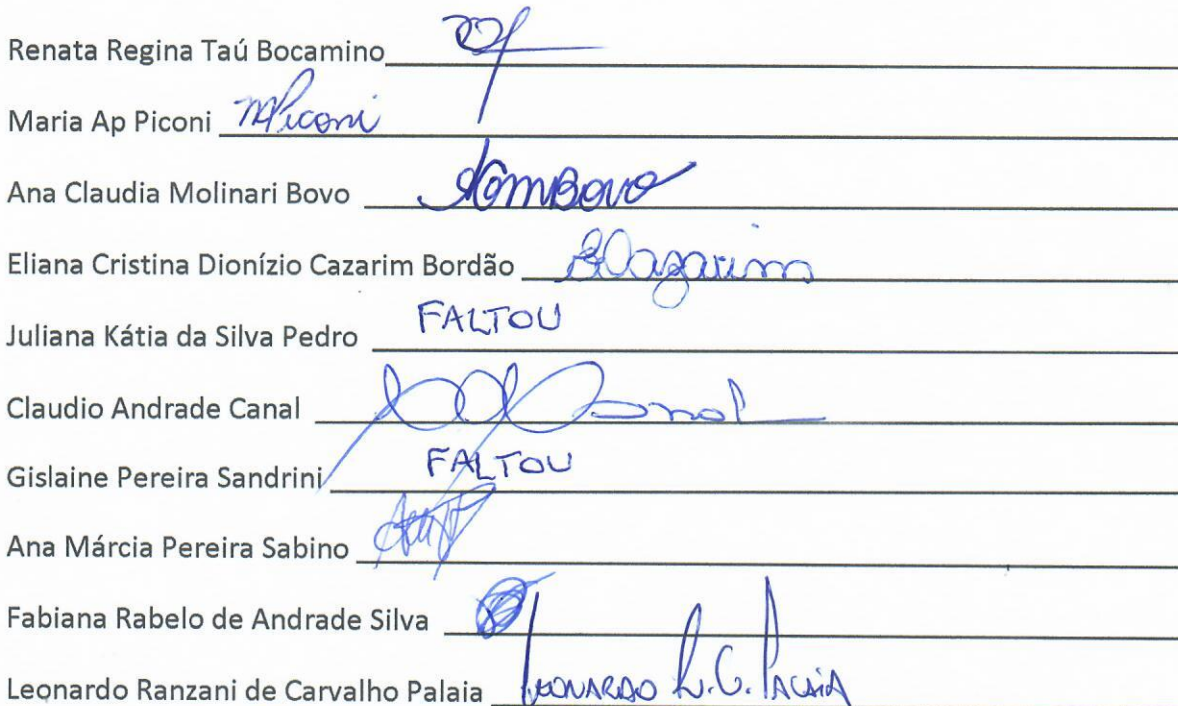 Renata Regina Taú Bocamino
Maria Ap Piconi MPiconi
Ana Claudia Molinari Bovo
Eliana Cristina Dionízio Cazarim Bordão
Juliana Kátia da Silva Pedro FALTOU
Claudio Andrade Canal
Gislaine Pereira Sandrini FALTOU
Ana Márcia Pereira Sabino
Fabiana Rabelo de Andrade Silva
Leonardo Ranzani de Carvalho Palaia LEONARDO R.C. PALAIA